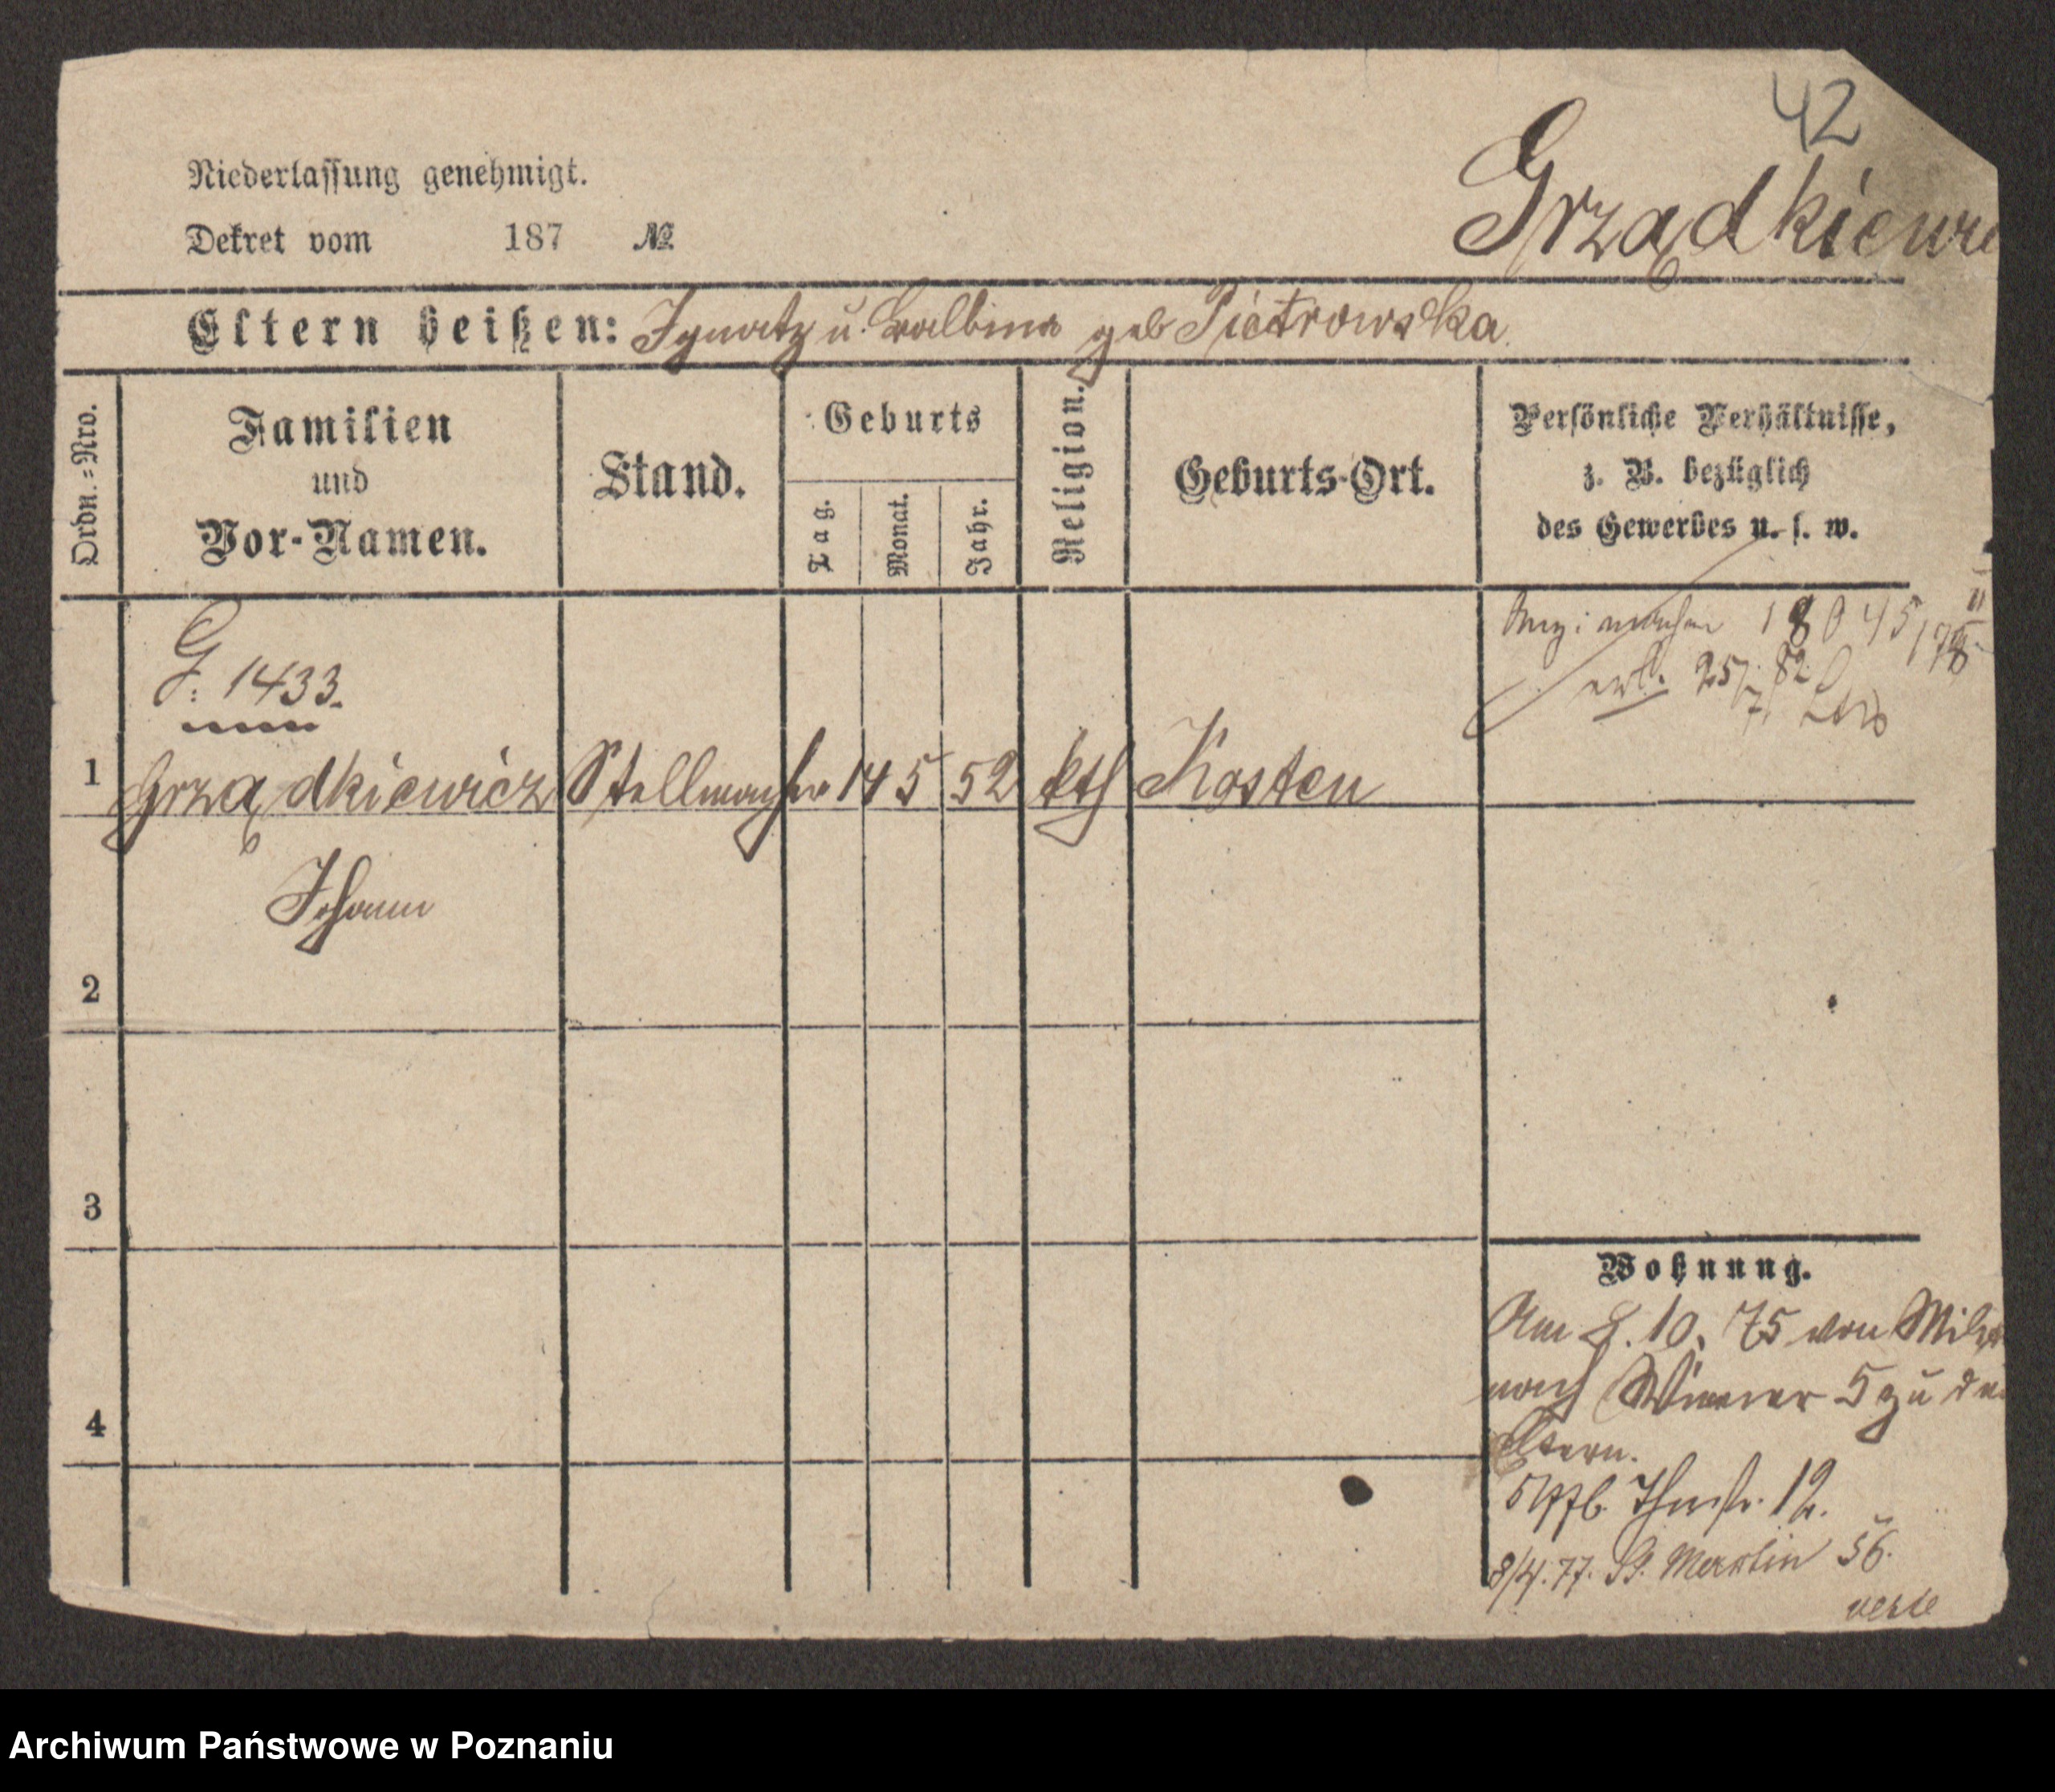 42
Niederlassung genehmigt.
Dekret vom 187 №
Grządkiewic
Eltern heißen: Ignatz u. Balbina geb Pietrowska.
Ordn.=Nro.
Familien
und
Vor-Namen.
Stand.
Geburts
Tag.
Monat.
Jahr.
Religion.
Geburts-Ort.
Persönliche Verhältnisse,
z. B. bezüglich
des Gewerbes u. s. w.
G. 1433.
25/7. 82.
1 Grządkiewicz Stellmacher 14 5 52 kth Kosten
Johann
2
3
4
Wohnung.
Am 8. 10. 75 von Milit
nach Wiener 5 zu den
Eltern.
12.
8/4. 77. St. Martin 56.
verte
Archiwum Państwowe w Poznaniu